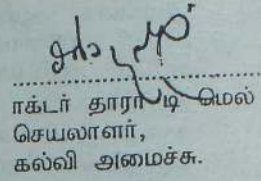 ாக்டர் தாரா டி மெல்
செயலாளர்,
கல்வி அமைச்சு.